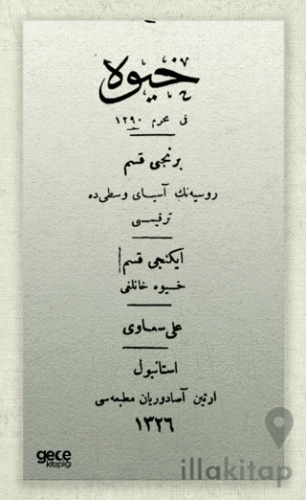 خیوه
فی محرم ١٢٩٠
برنجی قسم
روسیه‌نك آسیای وسطی‌ده
ترقیسی
ایکنجی قسم
خیوه خانلغی
علی سعاوی
استانبول
ارتین آصادوریان مطبعه‌سی
١٣٢٦
gece
kitaplığı
illakitap